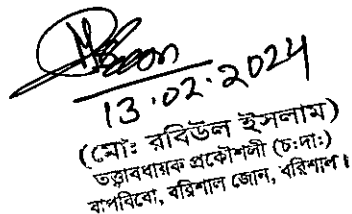 13.02.2024
(মোঃ রবিউল ইসলাম)
তত্ত্বাবধায়ক প্রকৌশলী (চঃদাঃ)
বাপবিবো, বরিশাল জোন, বরিশাল।